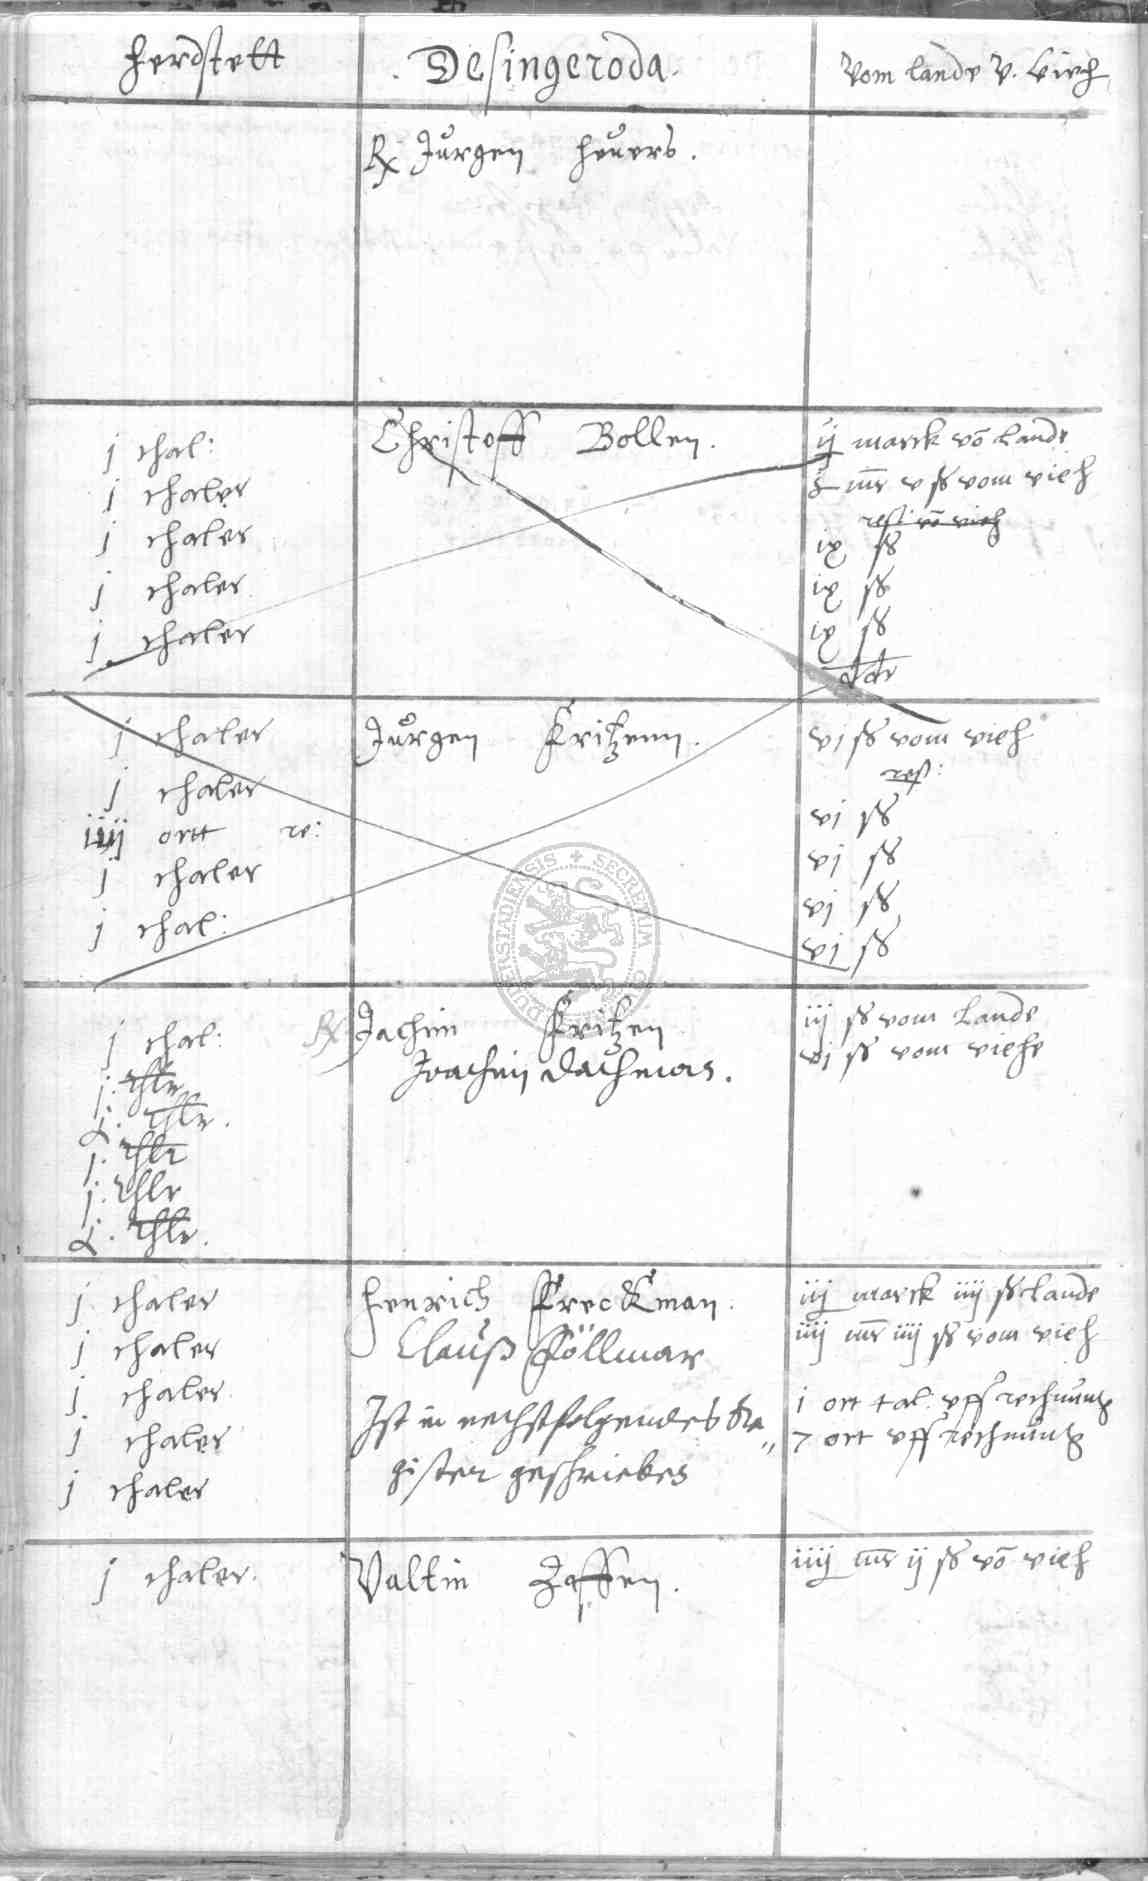 herdstett
Desingeroda.
Vom lande v. viech
Rx Jürgen heuers.
j thal:
j thaler
j thaler
j thaler
j thaler
Christoff Bollen.
ij marck vō Lande
mr v ß vom vieh
rest vō vieh
ix ß
ix ß
ix ß
j thaler
j thaler
iiij ortt re:
j thaler
j thal:
Jürgen Fritzenn.
vj ß vom vieh
rest:
vj ß
vj ß
vj ß
vj ß
j thal:
j. thlr
j. thlr.
j. thlr
j. thlr
j. thlr.
Rx Jachim Fritzen
Joachim Dachmars.
iij ß vom Lande
vj ß vom viehe
j thaler
j thaler
j thaler
j thaler
j thaler
Henrich Freckman.
Clauß Föllmar
Ist in nechstfolgendes Re
gister geschrieben
iiij marck iiij ß lande
iiij mr iiij ß vom vieh
1 ort tal. vff rechnung
7 ort vff rechnung
j thaler.
Valtin Zossen.
iiij mr ij ß vō vieh
SECRETUM